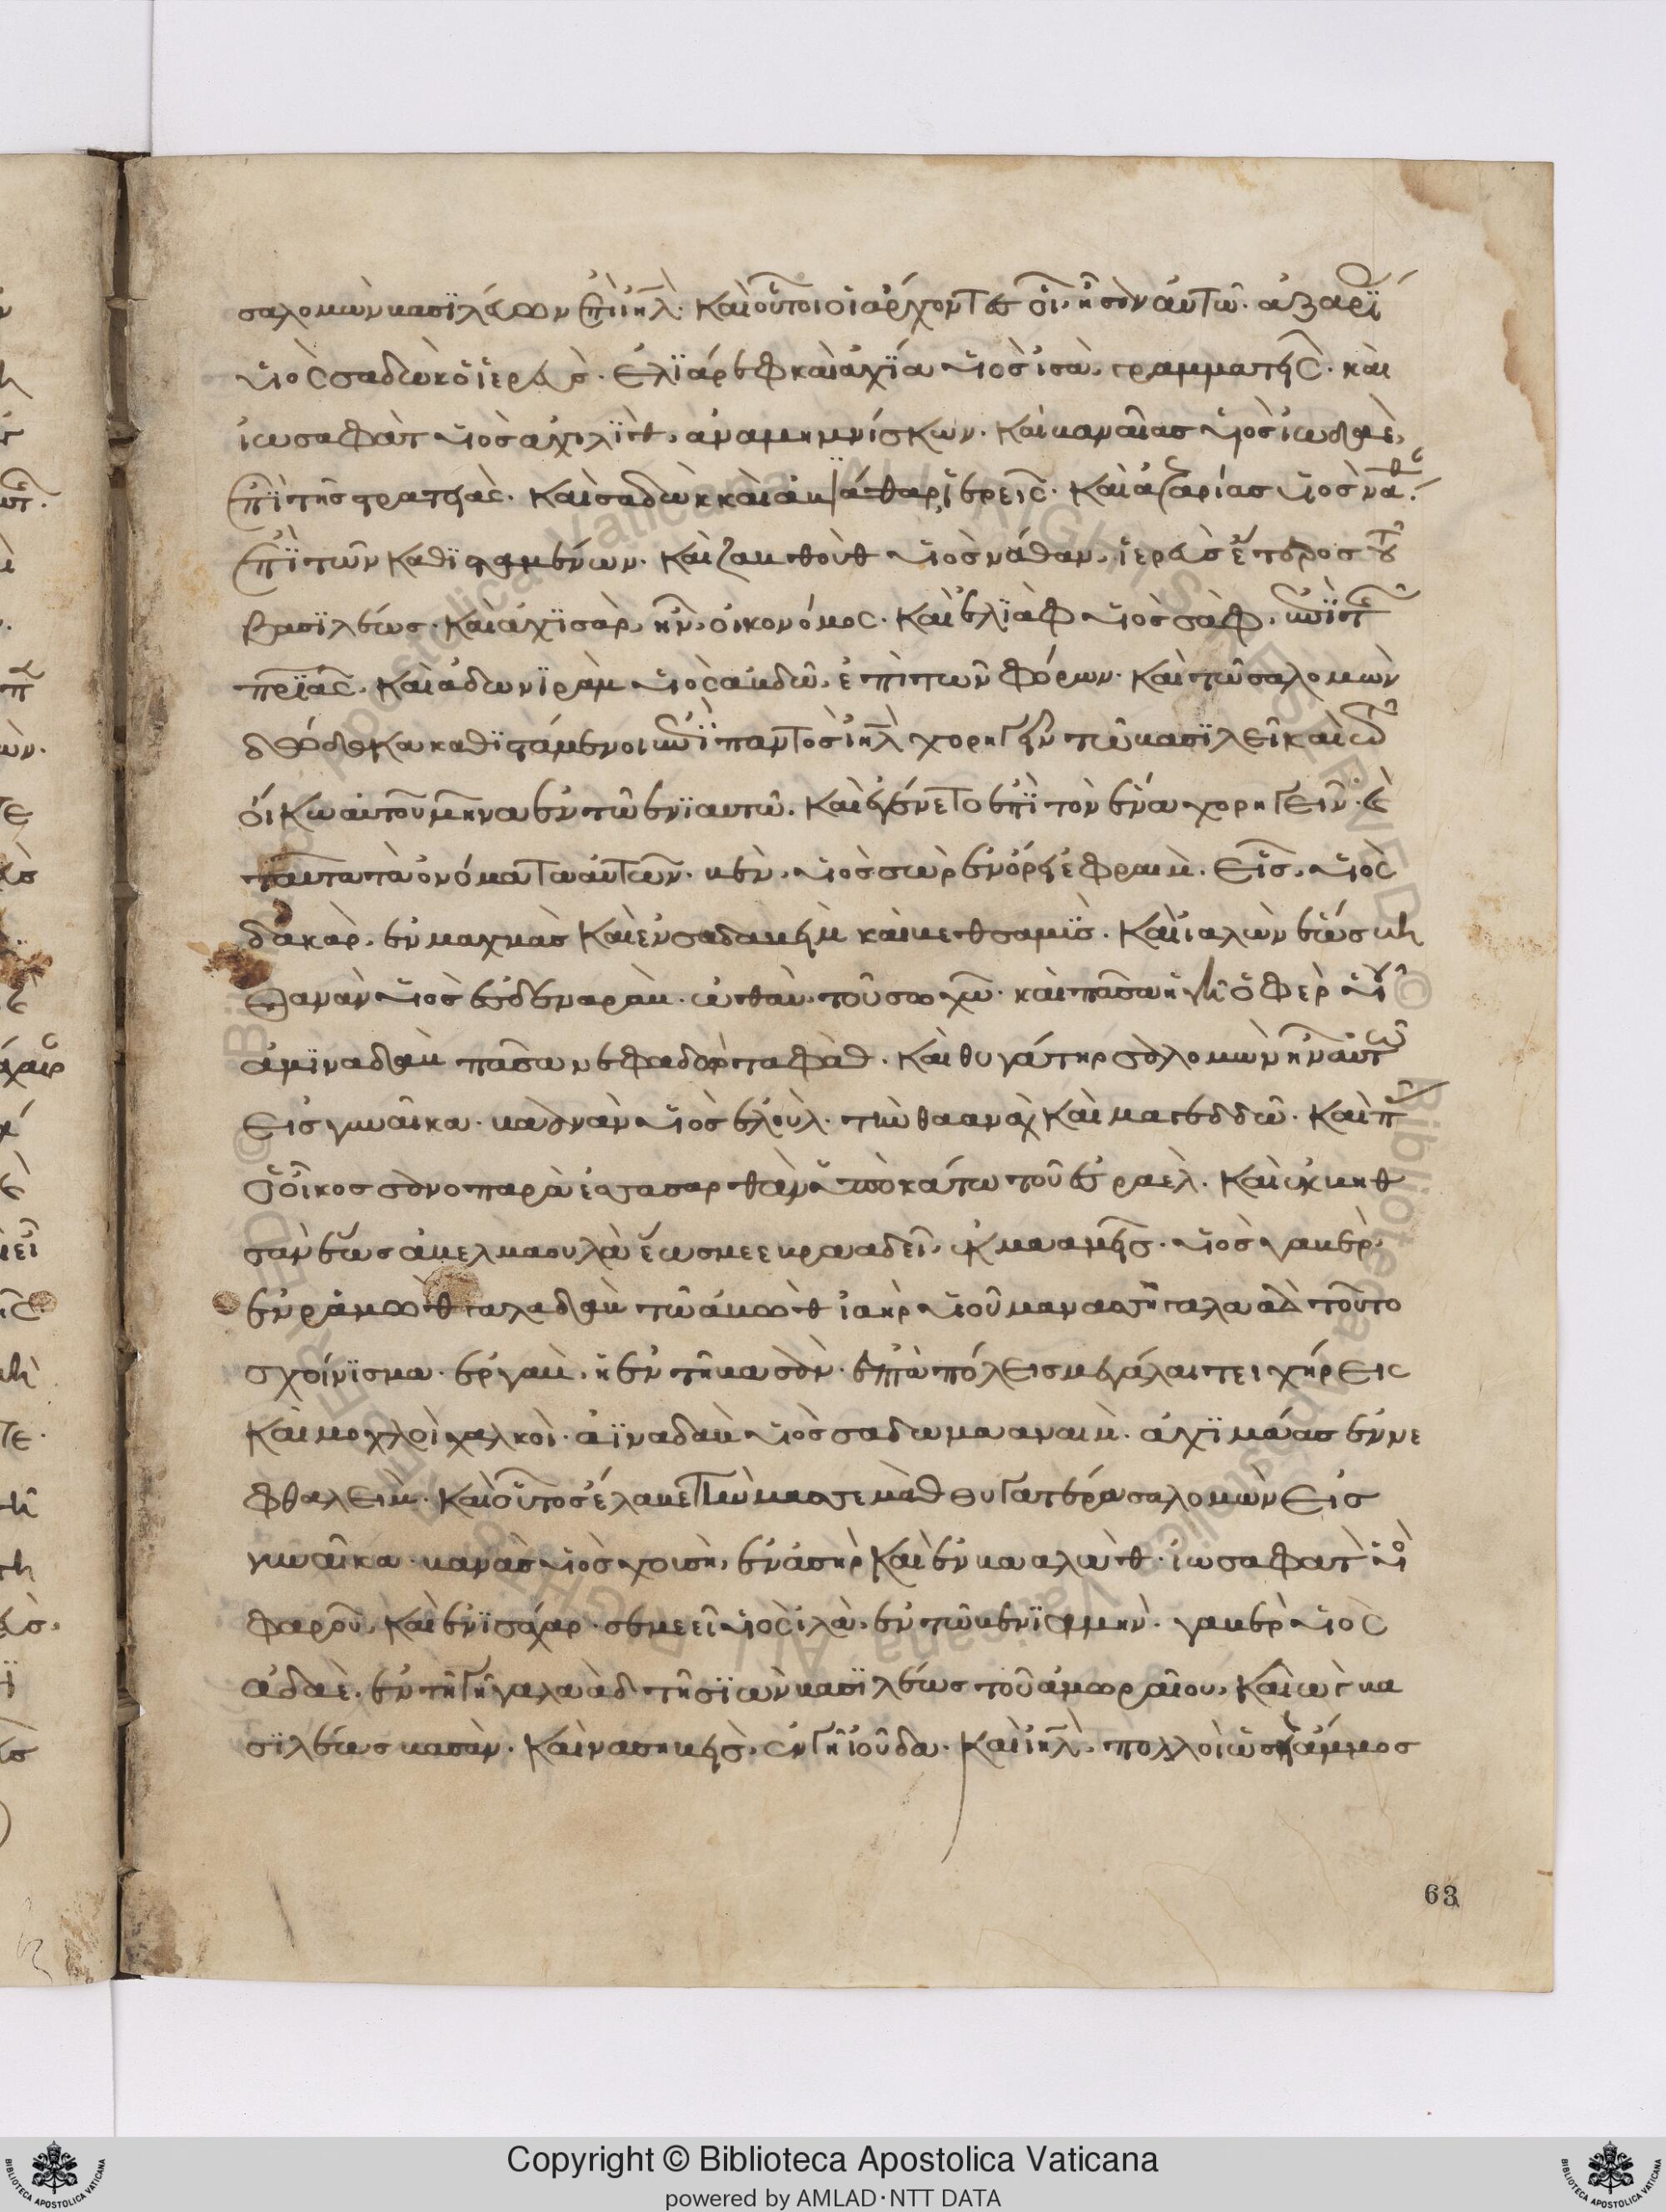 σαλομὼν βασϊλεύων ἐπὶ ἰηλ̅· καὶ οὗτοι οἱ ἄρχοντες οἳ ἦσαν αὐτῶ· ἀζαρΐ
υἱὸς σαδὼκ ὁ ἱερεὺς· ἐλϊάρεφ καὶ ἀχϊὰ υἱὸς ἰσὰ, γραμματῆς· καὶ
ἰωσαφὰτ υἱὸς ἀχιλϊὶθ, ἀναμημνίσκων· καὶ βαναίας υἱὸς ἰωδαὲ,
ἐπὶ τῆς στρατειᾶς· καὶ σαδὼκ καὶ ἀβϊάθαρ ἱερεῖς· καὶ ἀζαρίας υἱὸς νάθ
ἐπὶ τῶν καθϊσταμένων· καὶ ζαβθοὺθ υἱὸς νάθαν, ἱερεὺς ἑταῖρος τοῦ
βασϊλέως· καὶ ἀχϊσὰρ, ἦν, οἰκονόμος· καὶ ἐλϊὰφ υἱὸς σὰφ, ἐπὶ τῆς
πρϊᾶς. καὶ ἀδωνϊρὰμ υἱὸς αὐδῶ, ἐπὶ τῶν φόρων· καὶ τῶ σαλομὼν
δώδεκα καθϊστάμενοι ἐπὶ παντὸς ἰηλ̅ χορηγεῖν τῶ βασϊλεῖ καὶ τῶ
οἴκω αὐτοῦ μῆνα ἐν τῶ ἐνϊαυτῶ. καὶ ἐγένετο ἐπὶ τὸν ἕνα χορηγεῖν· καὶ
ταῦτα τὰ ὀνόματα αὐτῶν· βὲν, υἱὸς σὼρ ἐν ὄρει ἐφραὶμ. εἷς, υἱὸς
δακὰρ, ἐν μαχμὰς καὶ ἐν σαδαβεὶμ καὶ βεθσαμῒς. καὶ ἰαλὼν ἕως βη
θανὰν υἱὸς ἐσδεναρὰμ. ὠθὰν, τοῦ σοχὼ· καὶ πᾶσα ἡ γῆ ὀφὲρ υἱοῦ
ἀμϊναδὰβ πᾶσα νεφαδδὼρ ταφὰθ· καὶ θυγάτηρ σολομὼν ἦν αὐτῶ
εἰς γυναῖκα· βαανὰν υἱὸς ἐλοὺλ. τὼ θααναχ καὶ μαγεδδῶ. καὶ π
ὁ οἶκος σὰν ὁ παρὰ ἐσασαρθὰν ὑποκάτω τοῦ ἐσραελ. καὶ ἐκ βηθ
σὰν ἕως ἀβελμαουλὰ ἕως μεεβρααδεῖ, ἐκμααμεῖς· υἱὸς γαβὲρ,
ἐν ῥαμὼθ γαλαδὰμ τῶ ἀμὼθ ἰαῒρ υἱοῦ μανασσῆ γαλαὰδ τοῦτο
σχοίνϊσμα· ἐργαβ, ἡ ἐν τῆ βασὰν· ἑπτὰ πόλεις μεγάλαι τειχήρεις
καὶ μοχλοὶ χαλκοὶ· ἀϊναδαβ υἱὸς σαδω μααναιμ. ἀχϊμάας ἐν νε
φθαλειμ· καὶ οὗτος ἔλαβε τὴν μασσεμὰθ θυγατέρα σαλομὼν εἰς
γυναῖκα· βανὰς υἱὸς χουσὴ, ἐν ἀσὴρ καὶ ἐν βααλὼθ· ἰωσαφὰτ υἱὸς
φαροῦ, καὶ ἐν ϊσάχαρ· σεμεεῖ υἱὸς ἰλὰ, ἐν τῶ βενϊαμὴν. γαβὲρ υἱὸς
ἀδαὲ. ἐν τῆ γῆ γαλαὰδ τῆ σϊὼν βασϊλέως τοῦ ἀμορραίου, καὶ ὢγ βα
σϊλέως βασάν. καὶ νασὴβ εἷς, ἐν γῆ ἰούδα· καὶ ἰηλ̅, πολλοὶ ὡς ἡ ἄμμος
63
Copyright © Biblioteca Apostolica Vaticana
powered by AMLAD·NTT DATA